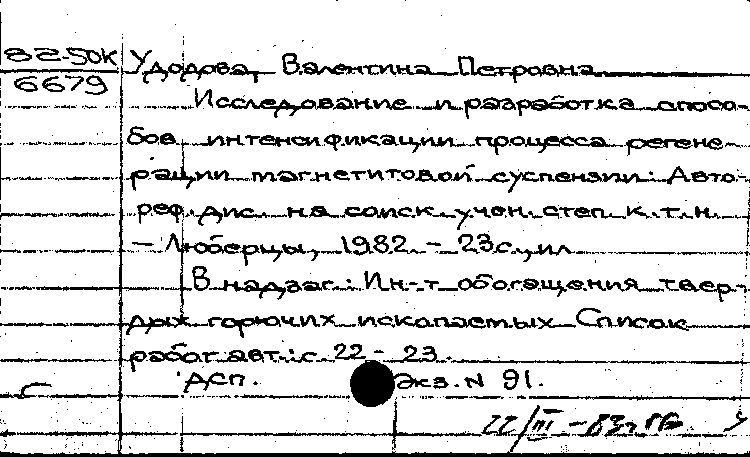 82-50К
6679
Удодова, Валентина Петровна
Исследование и разработка спосо-
бов интенсификации процесса регене-
рации магнетитовой суспензии: Авто-
реф. дис. на соиск. учен. степ. к.т.н.
– Люберцы, 1982. – 23с., ил
В надзаг.: Ин-т обогащения твер-
дых горючих ископаемых Список
работ авт.: с. 22 – 23.
ДСП. Экз. N 91.
22/III – 83г.